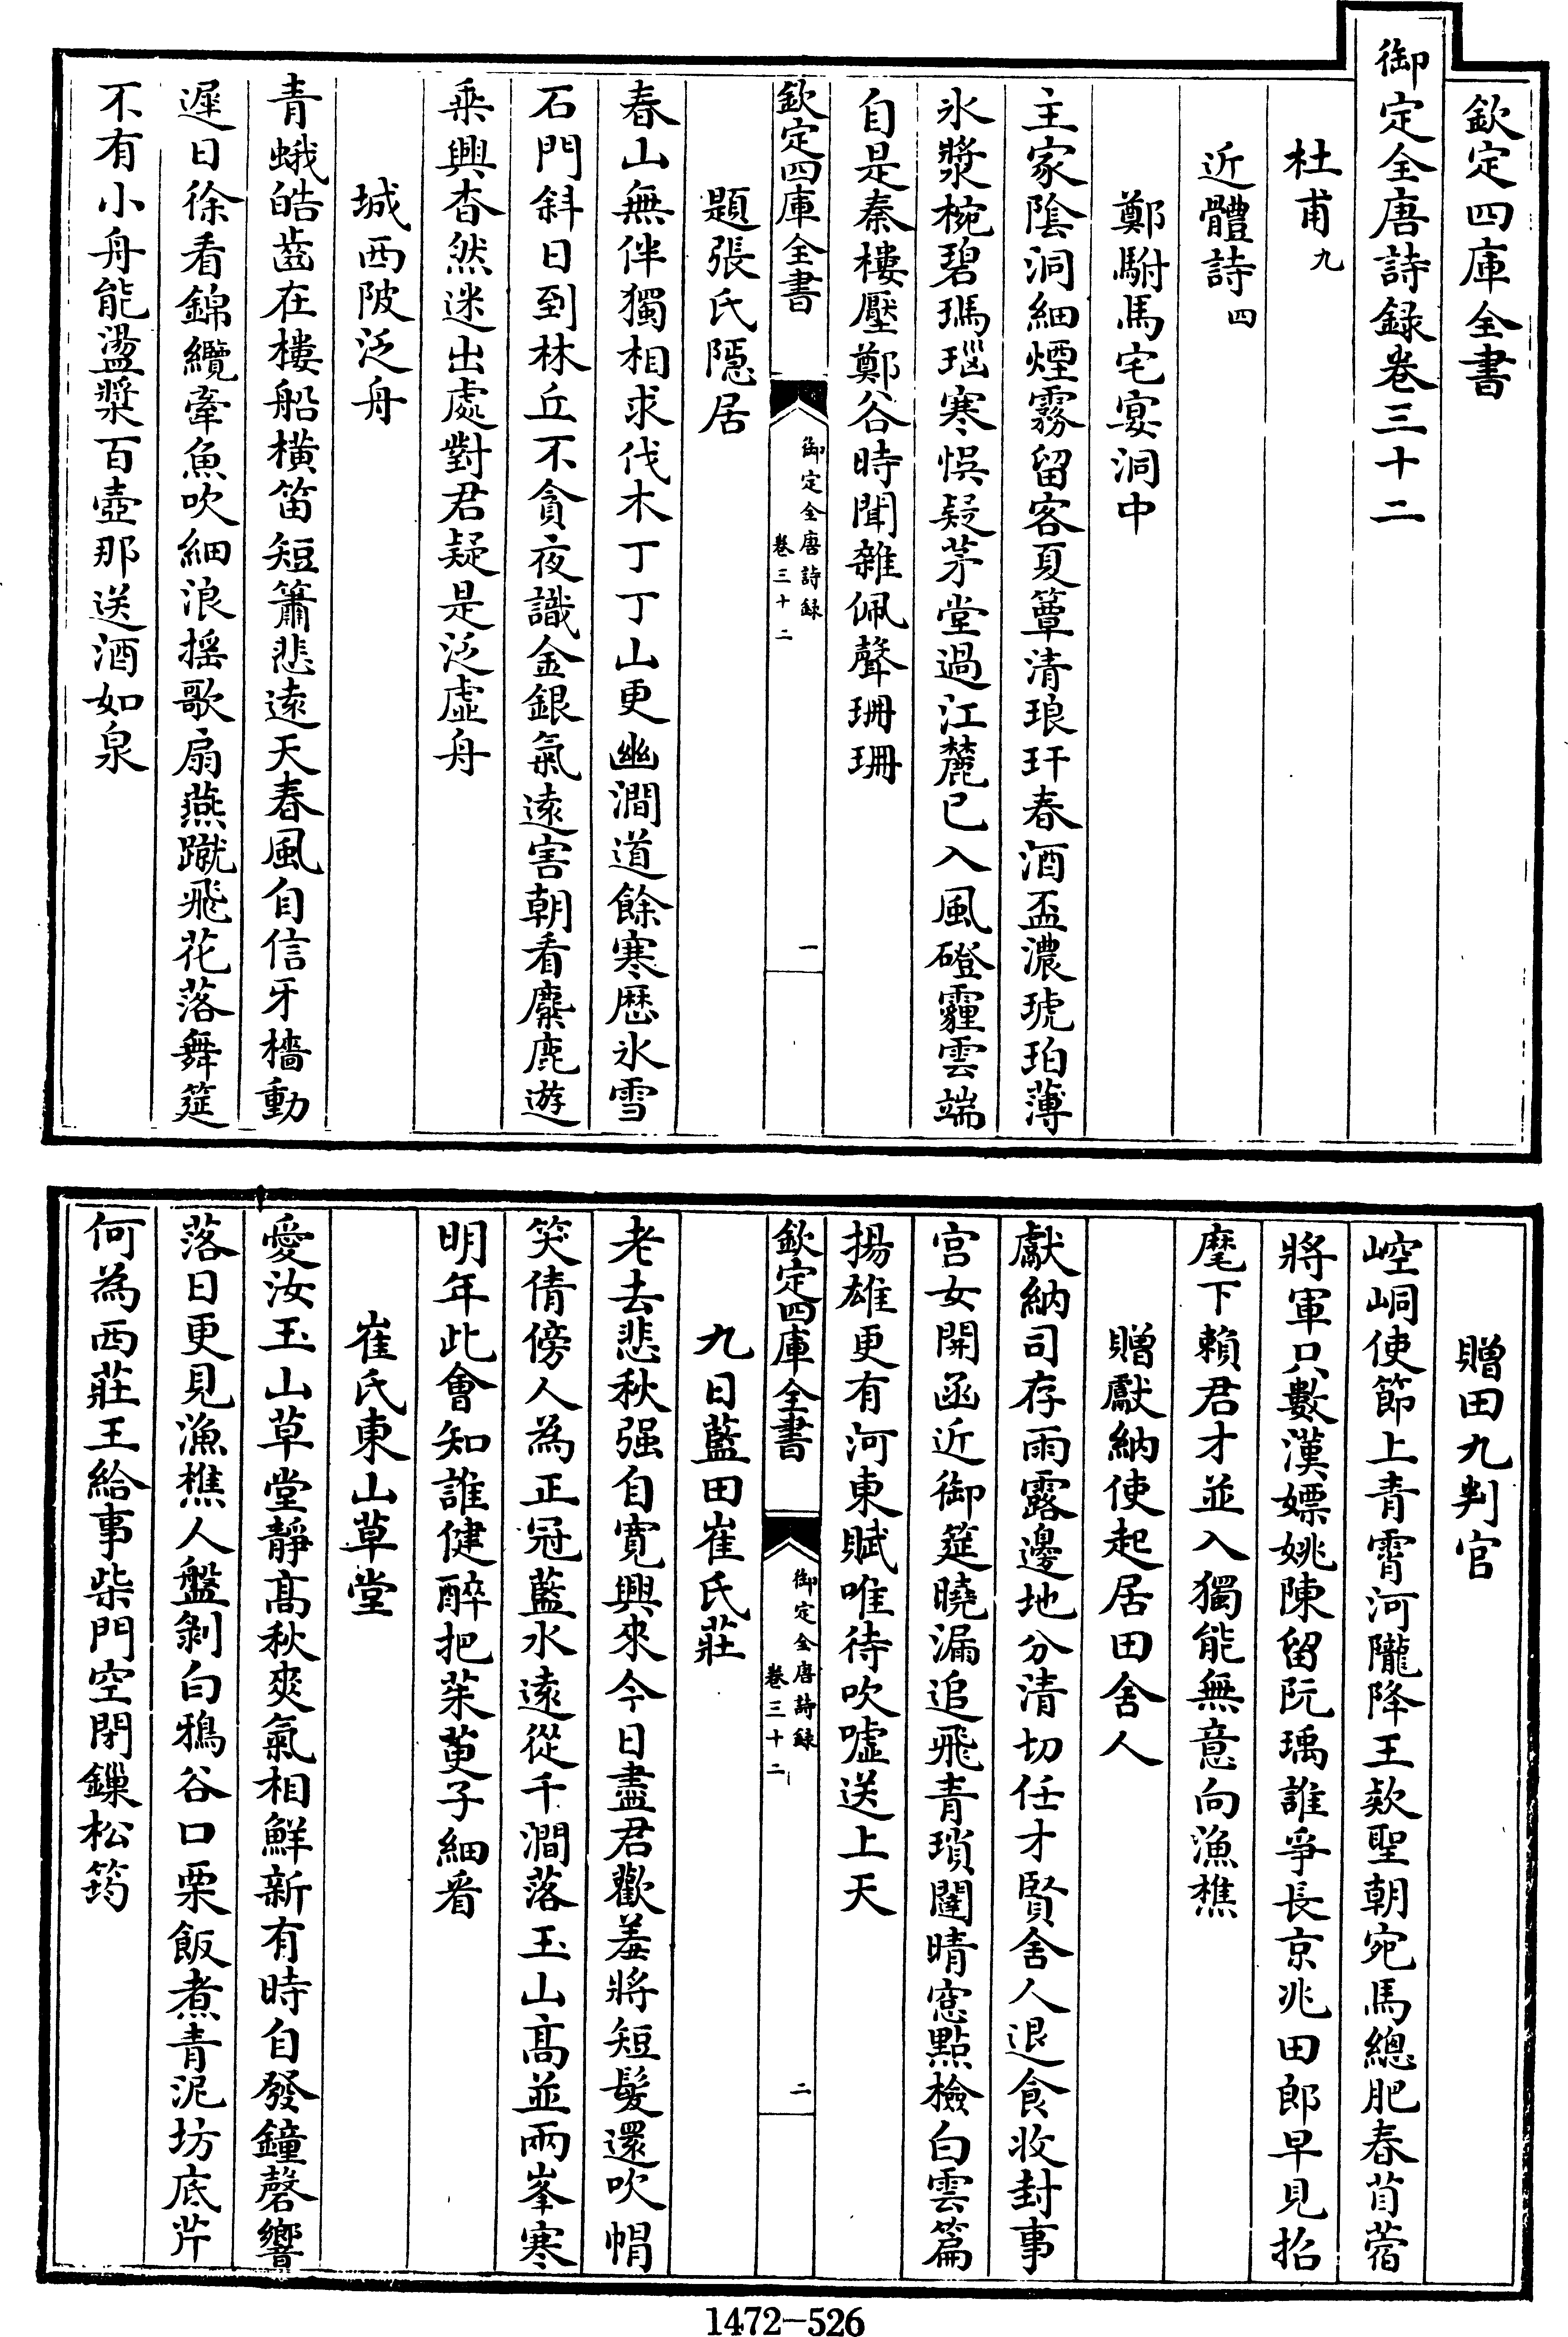 欽定四庫全書
御定全唐詩録卷三十二
杜甫九
近體詩四
鄭駙馬宅宴洞中
主家陰洞細煙霧留客夏簟清琅玕春酒盃濃琥珀薄
氷漿椀碧瑪瑙寒悞疑茅堂過江麓已入風磴霾雲端
自是秦樓壓鄭谷時聞雜佩聲珊珊
欽定四庫全書
御定全唐詩録
卷三十二
一
題張氏隱居
春山無伴獨相求伐木丁丁山更幽澗道餘寒歴氷雪
石門斜日到林丘不貪夜識金銀氣逺害朝看麋鹿遊
乗興杳然迷出處對君疑是泛虚舟
城西陂泛舟
青蛾皓齒在樓船横笛短簫悲逺天春風自信牙檣動
遲日徐看錦纜牽魚吹細浪揺歌扇燕蹴飛花落舞筵
不有小舟能盪槳百壺那送酒如泉
贈田九判官
崆峒使節上青霄河隴降王欵聖朝宛馬總肥春苜蓿
將軍只數漢嫖姚陳留阮瑀誰爭長京兆田郎早見招
麾下賴君才並入獨能無意向漁樵
贈獻納使起居田舍人
獻納司存雨露邊地分清切任才賢舍人退食收封事
宫女開函近御筵曉漏追飛青瑣闥晴窓點檢白雲篇
揚雄更有河東賦唯待吹嘘送上天
欽定四庫全書
御定全唐詩録
卷三十二
二
九日藍田崔氏莊
老去悲秋强自寛興來今日盡君歡羞將短髮還吹帽
笑倩傍人為正冠藍水逺從千澗落玉山髙並兩峯寒
明年此會知誰健醉把茱萸子細看
崔氏東山草堂
愛汝玉山草堂靜髙秋爽氣相鮮新有時自發鐘磬響
落日更見漁樵人盤剝白鴉谷口栗飯煮青泥坊底芹
何為西莊王給事柴門空閉鏁松筠
1472-526